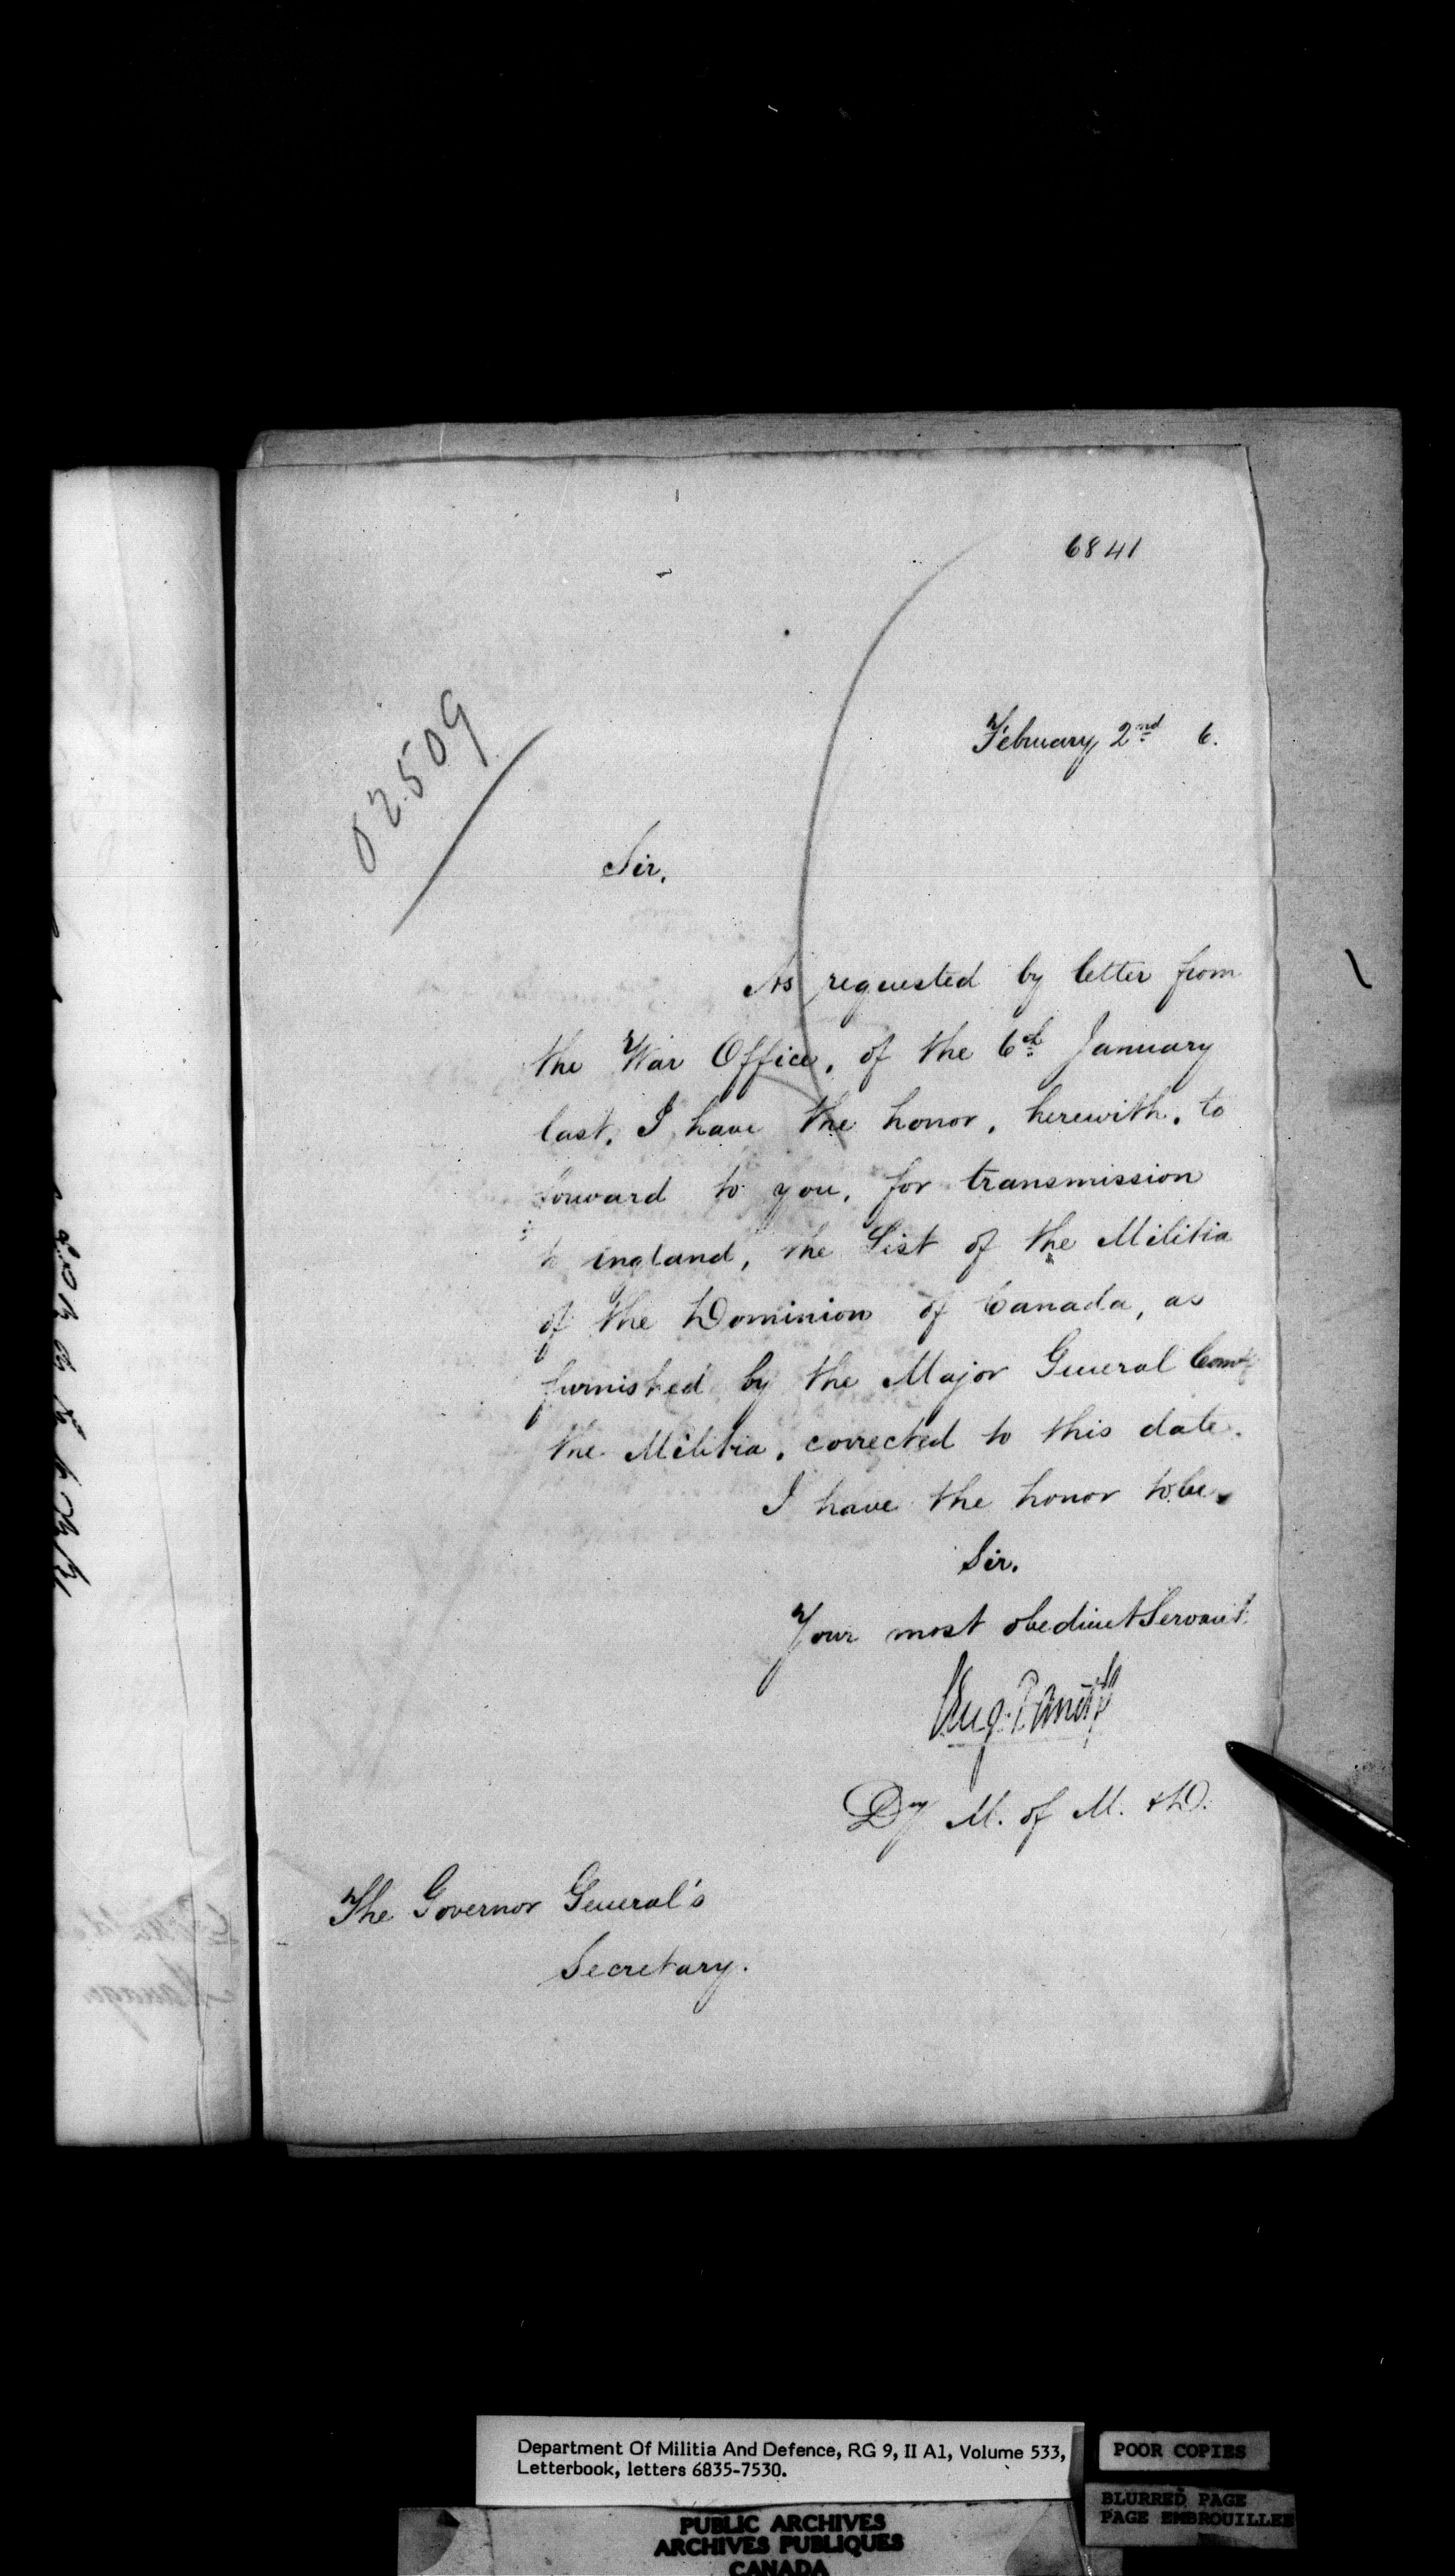 6841
02509
February 2nd 6.
Sir,
As requested by letter from
the War Office, of the 6th January
last, I have the honor, herewith, to
forward to you, for transmission
to England, the List of the Militia
of the Dominion of Canada, as
furnished by the Major General Comdg
the Militia, corrected to this date.
I have the honor to be,
Sir,
Your most obedient Servant.
Eug. Panet
Dy M. of M. & D.
The Governor General's
Secretary.
Department Of Militia And Defence, RG 9, II A1, Volume 533,
Letterbook, letters 6835-7530.
POOR COPIES
BLURRED PAGE
PAGE EMBROUILLEE
PUBLIC ARCHIVES
ARCHIVES PUBLIQUES
CANADA